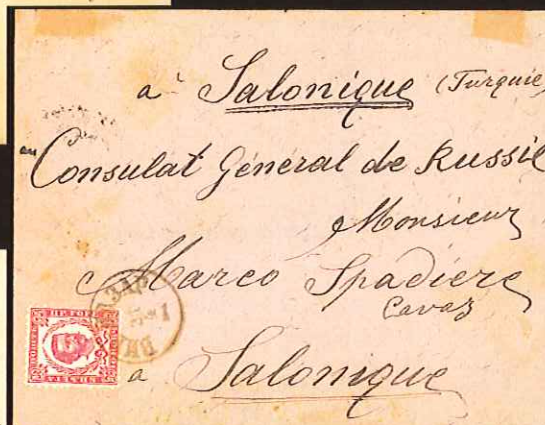 a Salonique (Turquie)
au
Consulat Général de Russie
Monsieur
Marco Spadiere
Cavaz
a Salonique